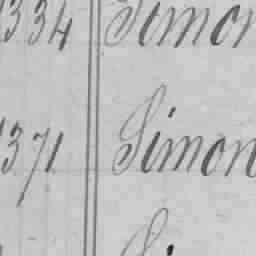 1334 Simon
1371 Simon